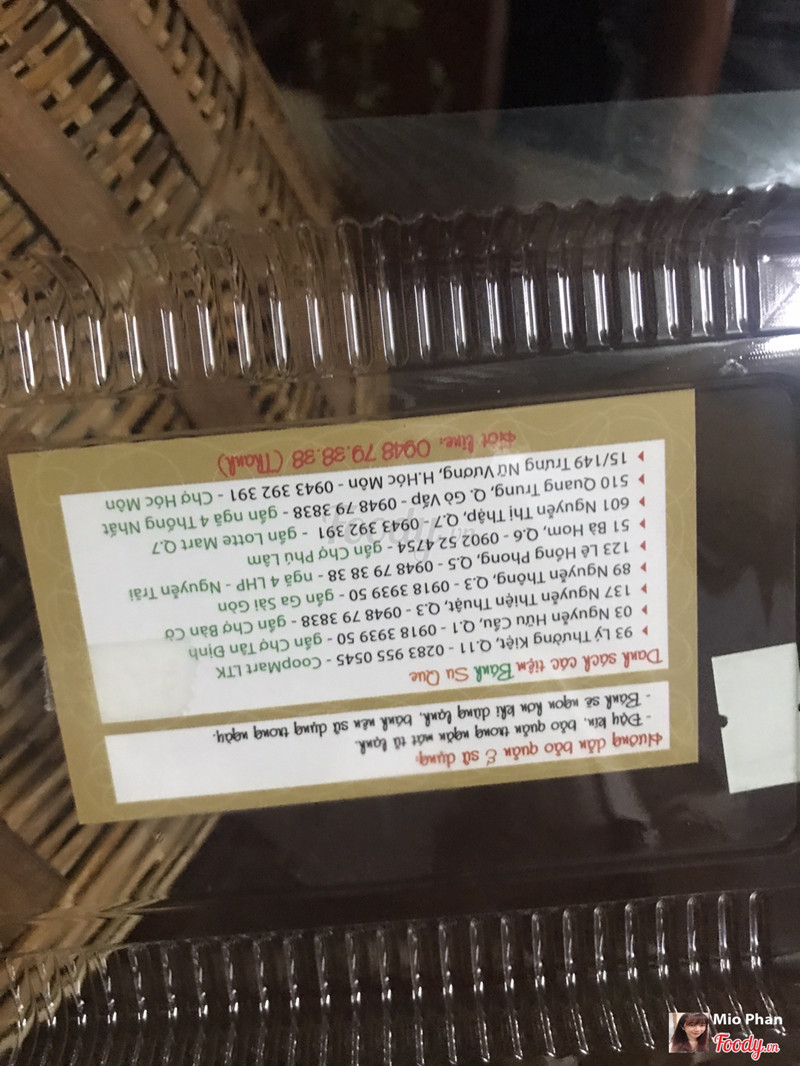 Hướng dẫn bảo quản & sử dụng:
- Đậy kín, bảo quản trong ngăn mát tủ lạnh.
- Bánh sẽ ngon hơn khi dùng lạnh, bánh nên sử dụng trong ngày.
Danh sách các tiệm Bánh Su Que
93 Lý Thường Kiệt, Q.11 - 0283 955 0545 - CoopMart LTK
03 Nguyễn Hữu Cầu, Q.1 - 0918 3939 50 - gần Chợ Tân Định
137 Nguyễn Thiện Thuật, Q.3 - 0948 79 3838 - gần Chợ Bàn Cờ
89 Nguyễn Thông, Q.3 - 0918 3939 50 - gần Ga Sài Gòn
123 Lê Hồng Phong, Q.5 - 0948 79 38 38 - ngã 4 LHP - Nguyễn Trãi
51 Bà Hom, Q.6 - 0902 52 4754 - gần Chợ Phú Lâm
601 Nguyễn Thị Thập, Q.7 - 0943 392 391 - gần Lotte Mart Q.7
510 Quang Trung, Q. Gò Vấp - 0948 79 3838 - gần ngã 4 Thống Nhất
15/149 Trưng Nữ Vương, H.Hóc Môn - 0943 392 391 - Chợ Hóc Môn
Hot line: 0948 79.38.38 (Thanh)
Foody.vn
Mio Phan
Foody.vn